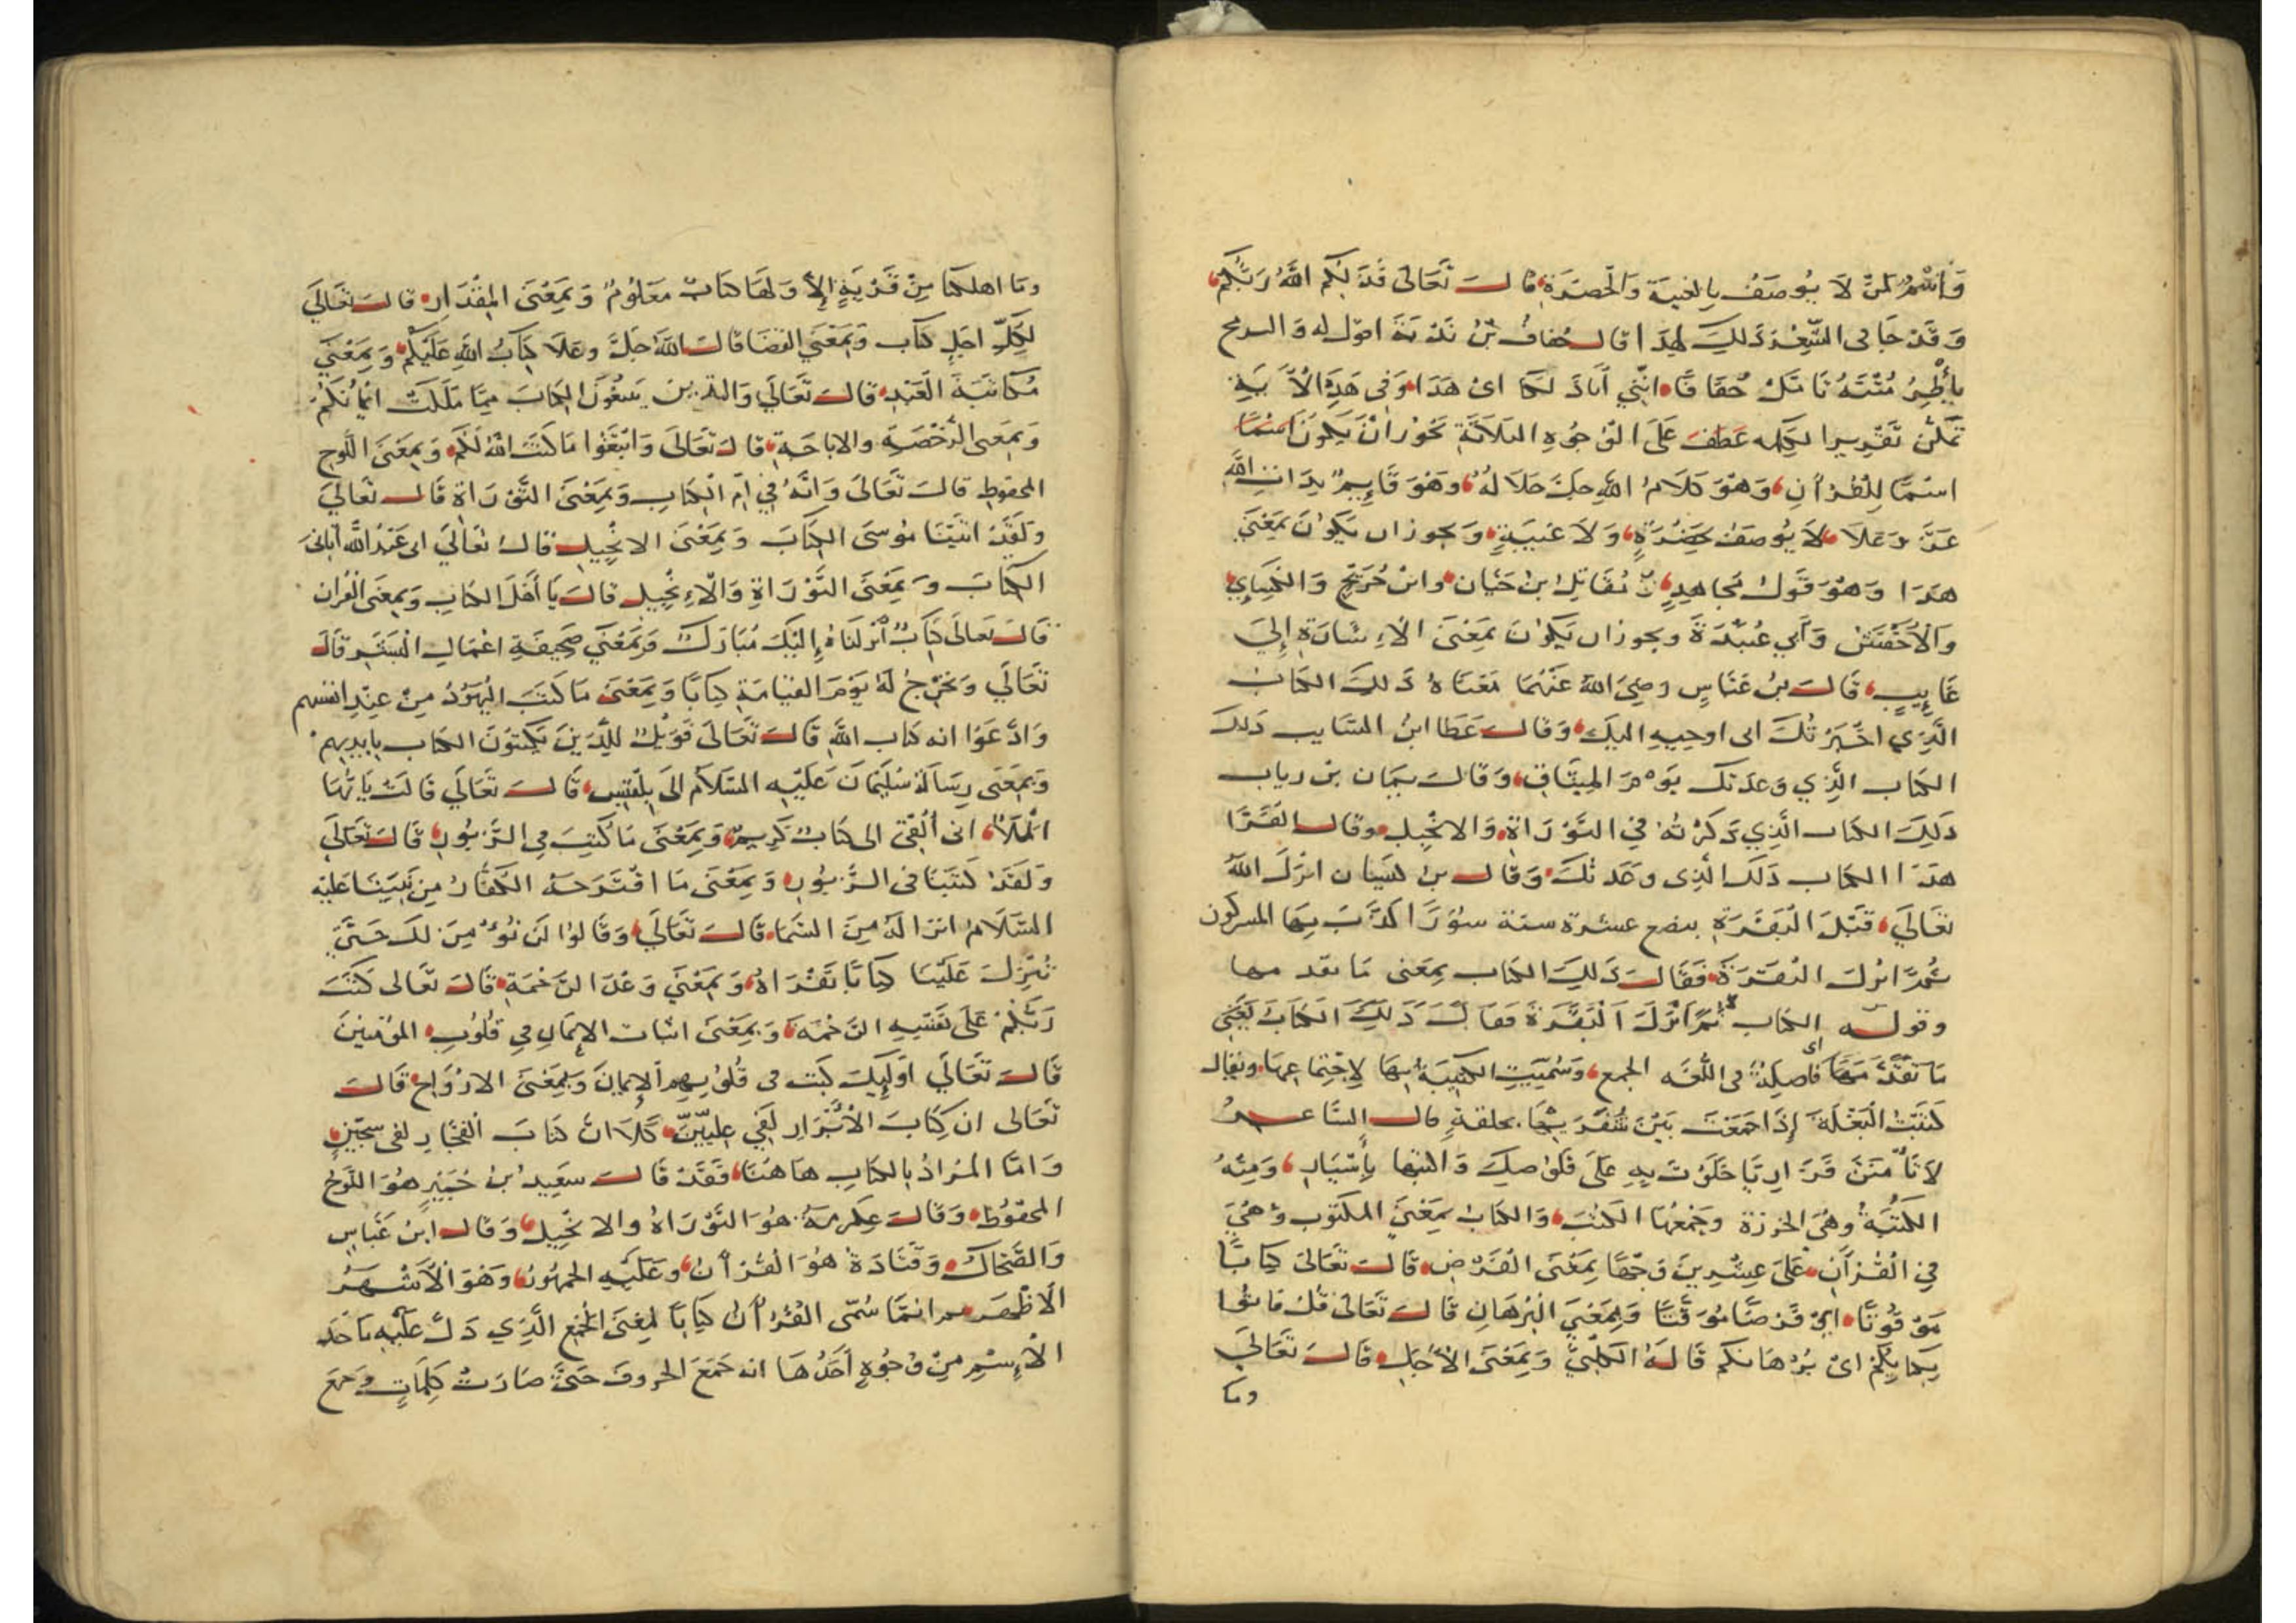 واسم لمن لا يوصف بالغيبة والحضرة قال تعالى فذلكم الله ربكم
وقد جا في الشعر ذلك لهذا قال خفاف بن ندبة اقول له والرمح
ياطر متنه تامل خفافا انني انا ذلكا اي هذا وفي هذه الاية
على الوجوه الثلاثة يجوز ان يكون اسما
اسما للقران وهو كلام الله جل جلاله وهو قايم بذات الله
عز وعلا لا يوصف بحضرة ولا غيبة ويجوز ان يكون بمعنى
هذا وهو قول مجاهد ومقاتل بن حيان وابن جريج والكساي
والاخفش وابي عبيدة ويجوز ان يكون بمعنى الاشارة الى
غايب قال بن عباس رضي الله عنهما معناه ذلك الكتاب
الذي اخبرتك اني اوحيه اليك وقال عطا ابن السايب ذلك
الكتاب الذي وعدتك يوم الميثاق وقال يمان بن رياب
ذلك الكتاب الذي ذكرته في التوراة والانجيل وقال الفرا
هذا الكتاب ذلك الذي وعدتك وقال بن كيسان انزل الله
تعالى قبل البقرة بضع عشرة سنة سورا كذب بها المشركون
ثم انزل البقرة فقال ذلك الكتاب بمعنى ما تقدمها
وقوله الكتاب ثم انزل البقرة فقال ذلك الكتاب يعني
ما تقدمها فاصله في اللغه الجمع وسميت الكتيبة بها لاجتماعها ويقال
كتبت البغلة اذا جمعت بين شفريها بحلقة قال الشاعر
لا تامنن فزاريا خلوت به على قلوصك واكتبها باسيار ومنه
الكتبة وهي الخرزة وجمعها الكتب والكتاب بمعنى المكتوب وهي
في القران على عشرين وجها بمعنى الفرض قال تعالى كتابا
موقوتا اي فرضا موقتا وبمعنى البرهان قال تعالى قل فاتوا
بكتابكم اي برهانكم قاله الكلبي وبمعنى الاجل قال تعالى
وما
وما اهلكنا من قرية الا ولها كتاب معلوم وبمعنى المقدار قال تعالى
لكل اجل كتاب وبمعنى القضا قال الله جل وعلا كتاب الله عليكم وبمعنى
مكاتبة العبد قال تعالى والذين يبتغون الكتاب مما ملكت ايمانكم
وبمعنى الرخصة والاباحة قال تعالى وابتغوا ما كتب الله لكم وبمعنى اللوح
المحفوظ قال تعالى وانه في ام الكتاب وبمعنى التوراة قال تعالى
ولقد اتينا موسى الكتاب وبمعنى الانجيل قال تعالى اني عبد الله آتاني
الكتاب وبمعنى التوراة والانجيل قال يا اهل الكتاب وبمعنى القران
قال تعالى كتاب انزلناه اليك مبارك وبمعنى صحيفة اعمال البشر قال
تعالى ونخرج له يوم القيامة كتابا وبمعنى ما كتب اليهود من عند انفسهم
وادعوا انه كتاب الله قال تعالى فويل للذين يكتبون الكتاب بايديهم
وبمعنى رسالة سليمان عليه السلام الى بلقيس قال تعالى قالت يا ايها
الملا اني القي الي كتاب كريم وبمعنى ما كتب في الزبور قال تعالى
ولقد كتبنا في الزبور وبمعنى ما اقترحه الكفار من نبينا عليه
السلام انزاله من السما قال تعالى وقالوا لن نومن لك حتى
تنزل علينا كتابا نقراه وبمعنى وعد الرحمة قال تعالى كتب
ربكم على نفسه الرحمة وبمعنى اثبات الايمان في قلوب المومنين
قال تعالى اوليك كتب في قلوبهم الايمان وبمعنى الارواح قال
تعالى ان كتاب الابرار لفي عليين كلا ان كتاب الفجار لفي سجين
واما المراد بالكتاب هاهنا فقد قال سعيد بن جبير هو اللوح
المحفوظ وقال عكرمة هو التوراة والانجيل وقال ابن عباس
والضحاك وقتادة هو القران وعليه الجمهور وهو الاشهر
الاظهر انما سمى القران كتابا لمعنى الجمع الذي دل عليه ماخذ
الاسم من وجوه احدها انه جمع الحروف حتى صارت كلمات وجمع